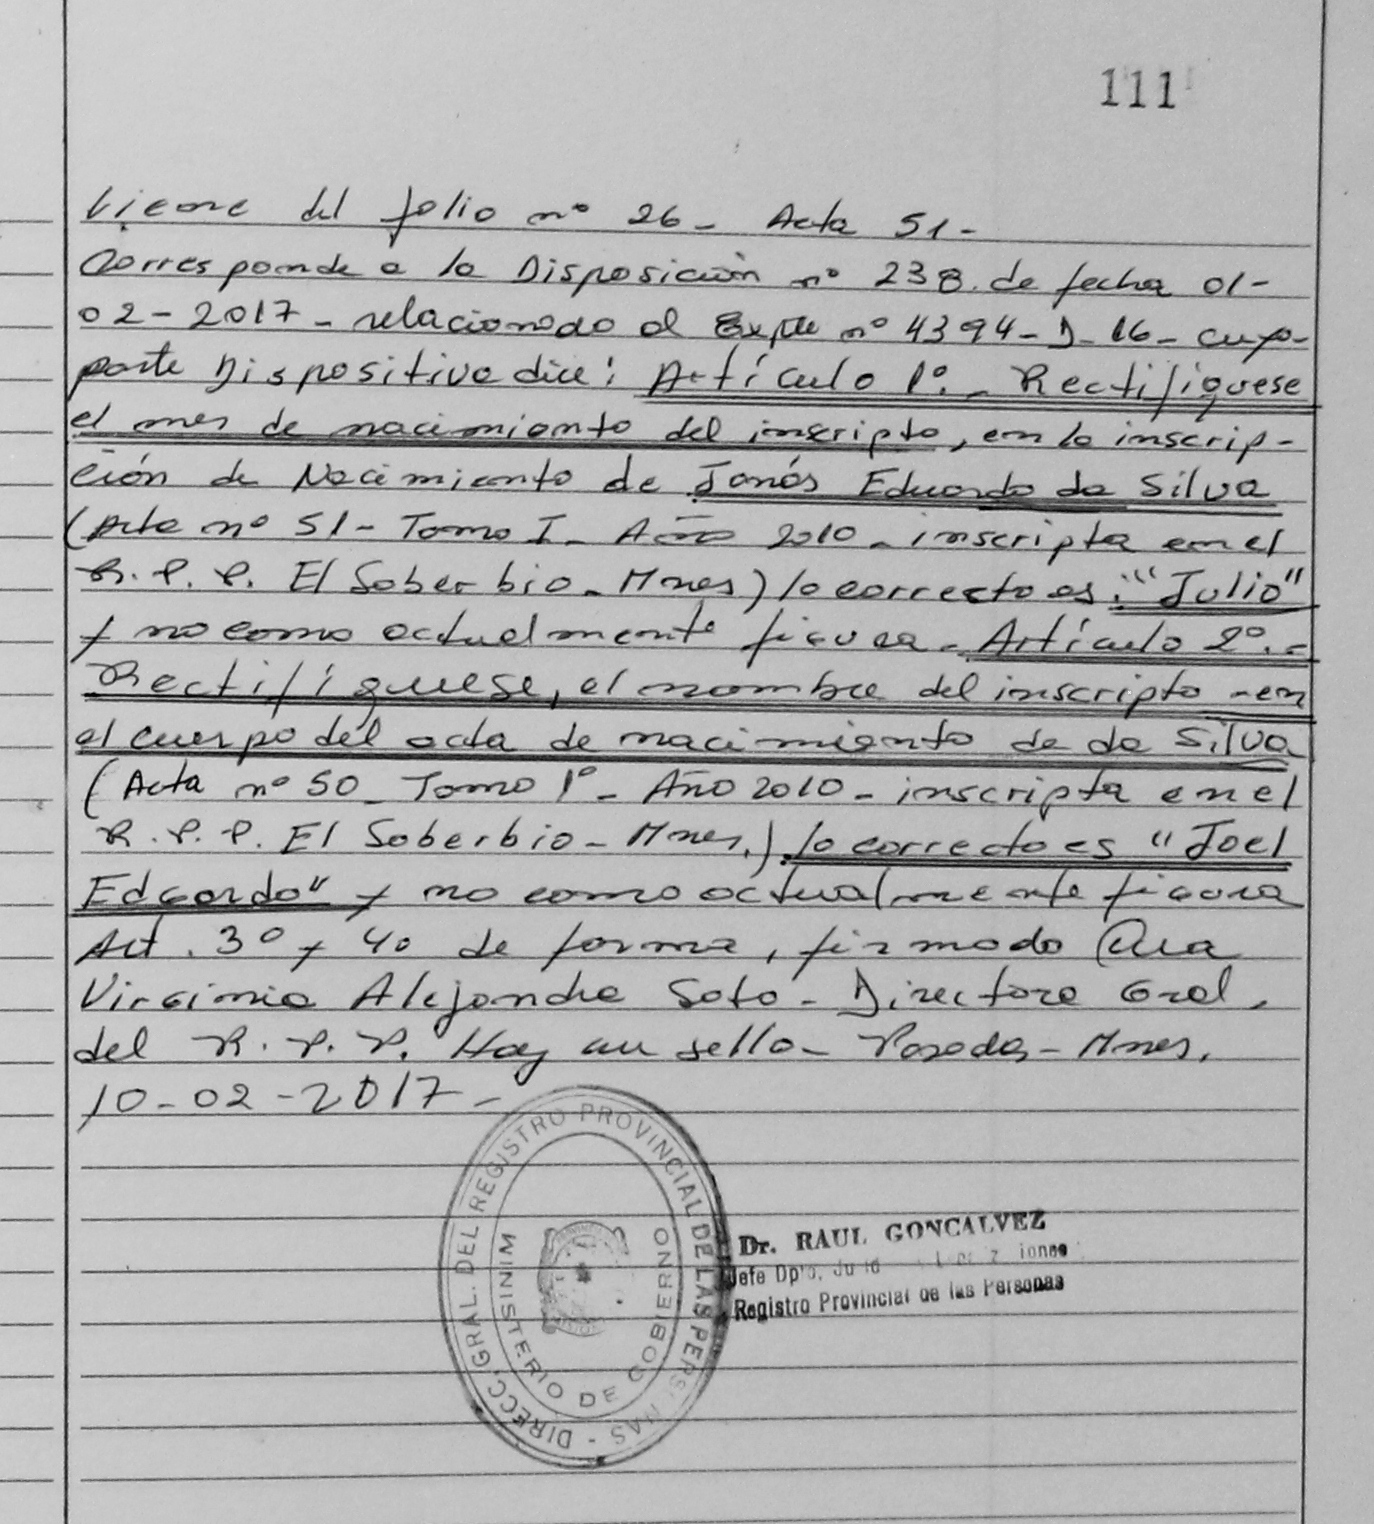 111
Viene del folio nº 26 - Acta 51 -
Corresponde a la Disposición nº 238 de fecha 01-
02-2017 - relacionado al Expte nº 4394-D-16- cuya
parte Dispositiva dice: Artículo 1º.- Rectifíquese
el mes de nacimiento del inscripto, en la inscrip-
ción de Nacimiento de Jonás Eduardo da Silva
(Acta nº 51 - Tomo I - Año 2010 - inscripta en el
R.P.P. El Soberbio - Mnes) lo correcto es: "Julio"
y no como actualmente figura - Artículo 2º.-
Rectifíquese, el nombre del inscripto - en
el cuerpo del acta de nacimiento de da Silva
(Acta nº 50 - Tomo 1º - Año 2010 - inscripta en el
R.P.P. El Soberbio - Mnes.) lo correcto es "Joel
Edgardo" y no como actualmente figura
Art. 3º y 4º de forma, firmado
Virginia Alejandra Soto - Directora Gral.
del R.P.P. Hay un sello - Posadas - Mnes.
10-02-2017 -
DIRECC. GRAL. DEL REGISTRO PROVINCIAL DE LAS PERSONAS -
MINISTERIO DE GOBIERNO
Dr. RAUL GONCALVEZ
Jefe Dpto.
Registro Provincial de las Personas